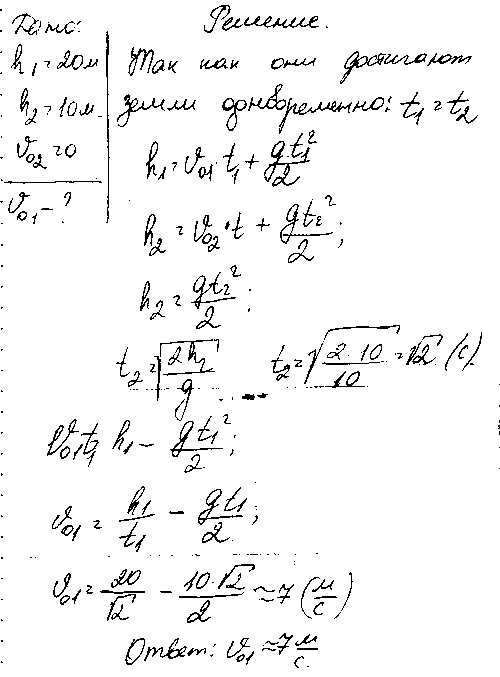 Дано:
h₁ = 20м
h₂ = 10м.
V₀₂ = 0
V₀₁ - ?
Решение.
Так как они достигают
земли одновременно: t₁ = t₂
h₁ = V₀₁ · t₁ + gt₁²/2
h₂ = V₀₂ · t + gt₂²/2;
h₂ = gt₂²/2;
t₂ = √(2h₂/g) t₂ = √(2·10/10) = √2 (с).
V₀₁t₁ h₁ - gt₁²/2;
V₀₁ = h₁/t₁ - gt₁/2;
V₀₁ = 20/√2 - 10·√2/2 ≈ 7 (м/с)
Ответ: V₀₁ ≈ 7 м/с.